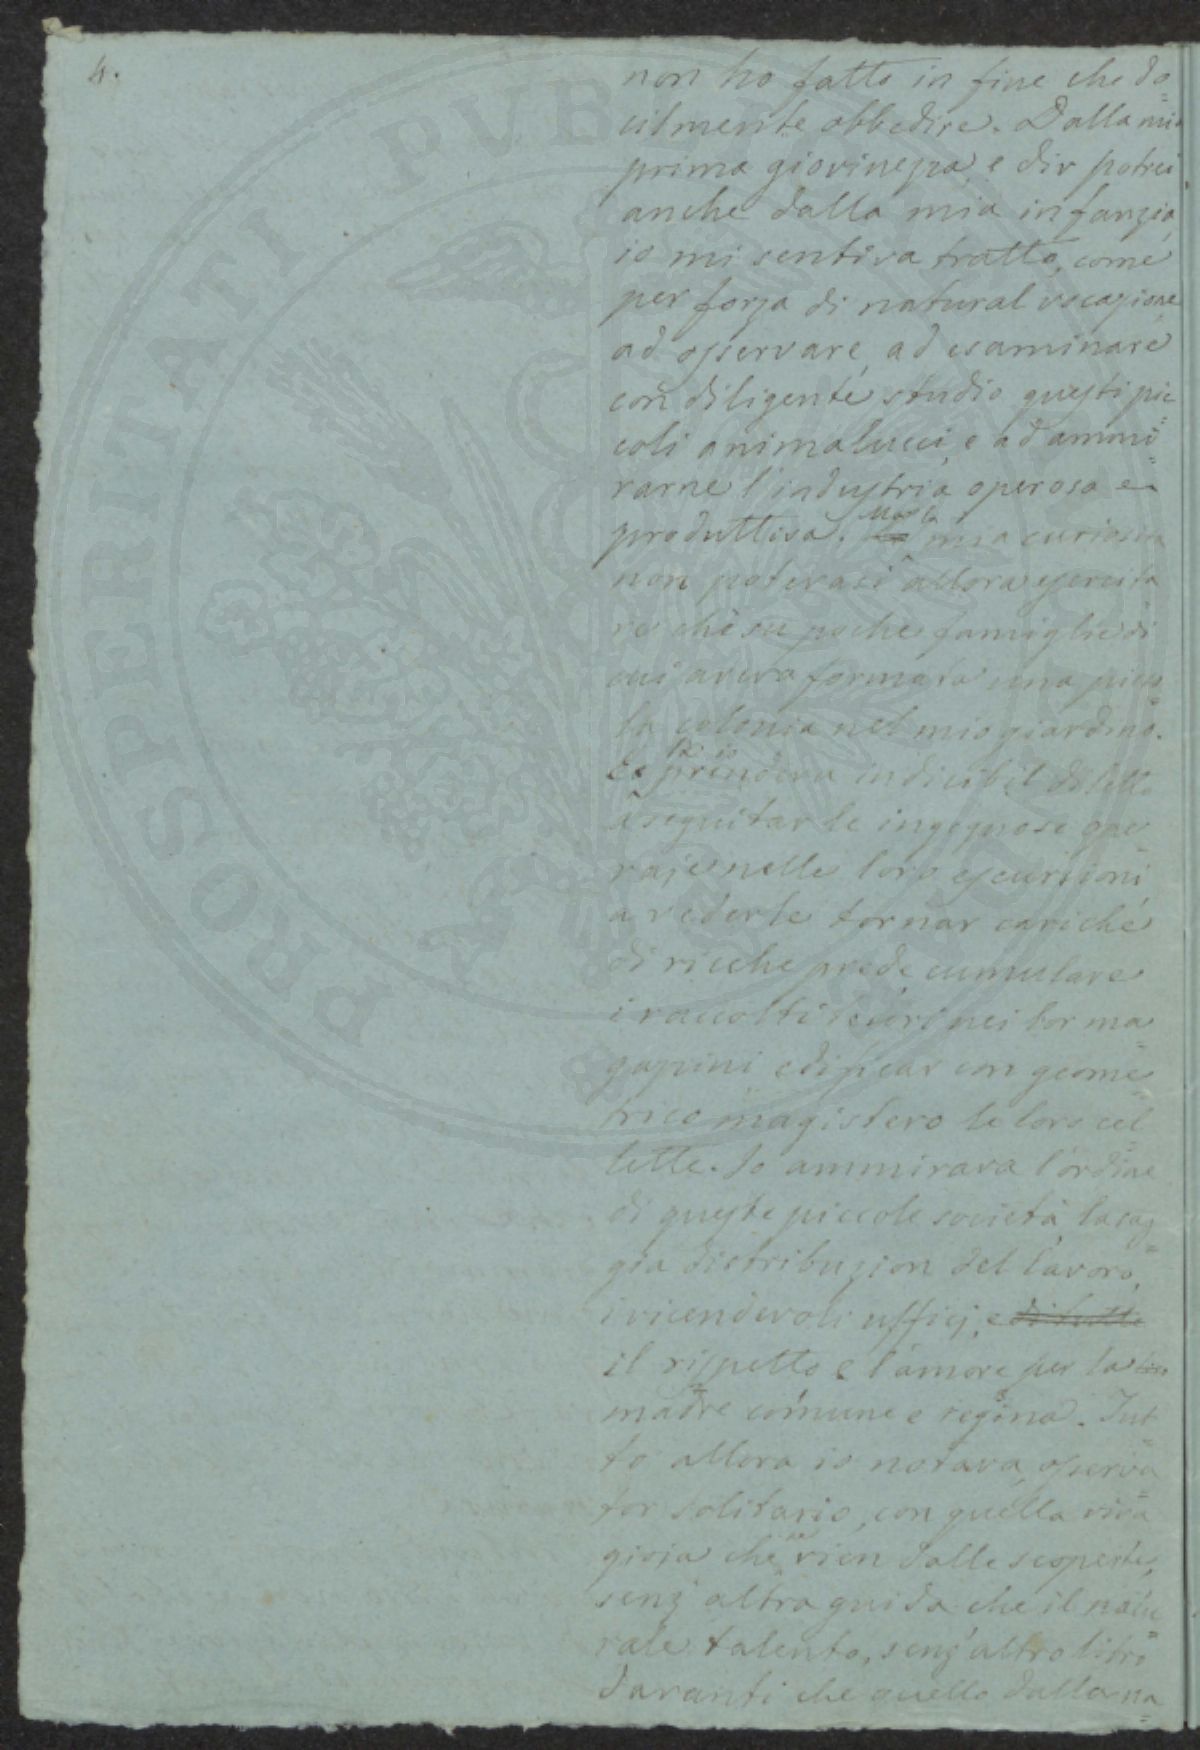 4.
non ho fatto in fine che do=
cilmente obbedire. Dalla mia
prima giovinezza, e dir potrei
anche dalla mia infanzia,
io mi sentiva tratto, come
per forza di natural vocazione
ad osservare, ad esaminare
con diligente studio questi pic=
coli animalucci, e ad ammi=
rarne l'industria operosa e
produttiva. Ma la mia curiosità
non potevasi allora esercita
re che su poche famiglie di
cui aveva formata una picco
la colonia nel mio giardino.
prendeva indicibil diletto
a seguitar le ingegnose ope=
raje nelle loro escursioni
a vederle tornar cariche
di ricche prede, cumulare
i raccolti tesori nei lor ma=
gazzini edificar con geome=
trico magistero le loro cel=
lette. Io ammirava l'ordine
di queste piccole società, la sag=
gia distribuzion del lavoro,
i vicendevoli ufficj, e di tutte
il rispetto e l'amore per la loro
madre comune e regina. Tut=
to allora io notava, osserva=
tor solitario, con quella viva
gioja che vien dalle scoperte,
senz'altra guida che il natu=
rale talento, senz'altro libro
davanti che quello dalla na=
PROSPERITATI PUBLICAE